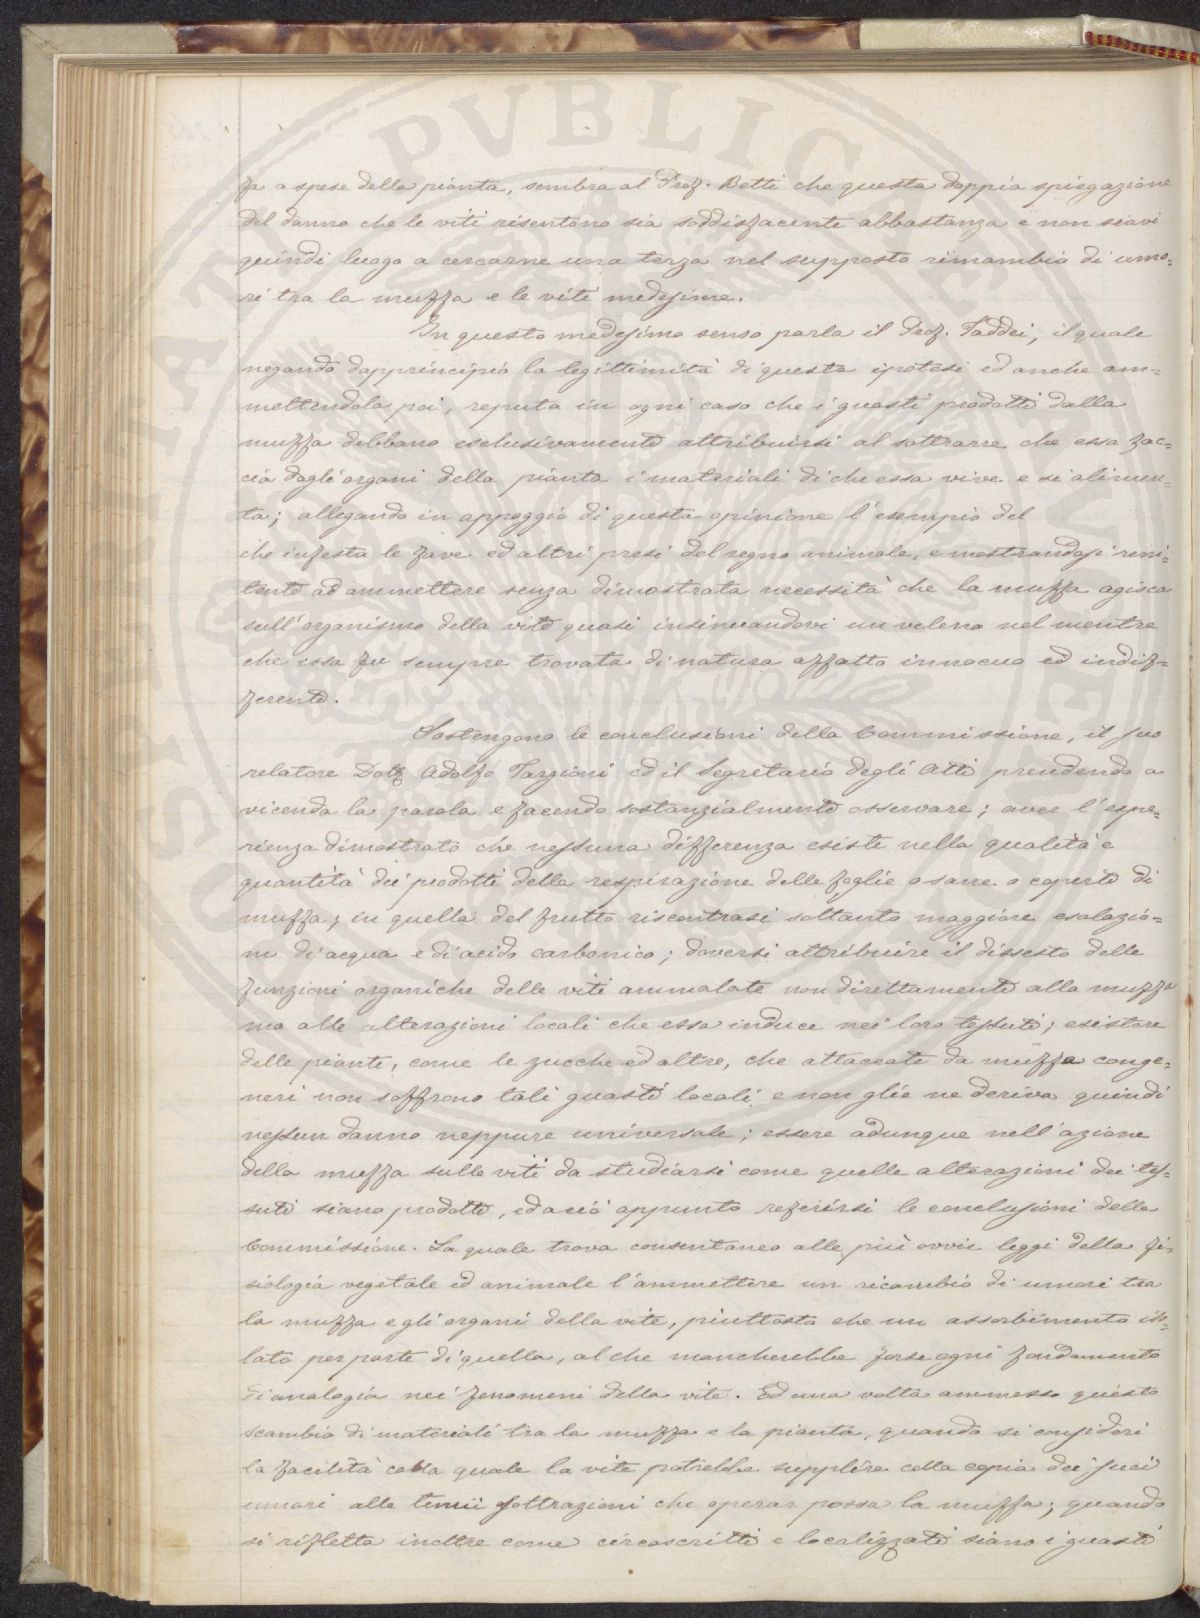 fa a spese della pianta, sembra al Prof. Betti che questa doppia spiegazione
del danno che le viti risentono sia soddisfacente abbastanza e non siavi
quindi luogo a cercarne una terza nel supposto rimambio di umo=
ri tra la muffa e le viti medesime.
In questo medesimo senso parla il Prof. Taddei, il quale
negando dapprincipio la legittimità di questa ipotesi ed anche am=
mettendola poi, reputa in ogni caso che i guasti prodotti dalla
muffa debbano esclusivamente attribuirsi al sottrarre che essa fac=
cia dagli organi della pianta i materiali di che essa vive e si alimen=
ta; allegando in appoggio di questa opinione l'esempio del
che infesta le fave ed altri presi del regno animale, e mostrandosi reni=
tente ad ammettere senza dimostrata necessità che la muffa agisca
sull'organismo della vite quasi insinuandovi un veleno nel mentre
che essa fu sempre trovata di natura affatto innocua ed indif=
ferente.
Sostengono le conclusioni della Commissione, il suo
relatore Dott Adolfo Targioni ed il Segretario degli Atti prendendo a
vicenda la parola e facendo sostanzialmente osservare; aver l'espe=
rienza dimostrato che nessuna differenza esiste nella qualità e
quantità dei prodotti della respirazione delle foglie o sane o coperte di
muffa; in quella del frutto riscontrasi soltanto maggiore esalazio=
ne di acqua e di acido carbonico; doversi attribuire il dissesto delle
funzioni organiche delle viti ammalate non direttamente alla muffa
ma alle alterazioni locali che essa induce nei loro tessuti; esistere
delle piante, come le zucche ed altre, che attaccate da muffe conge=
neri non soffrono tali guasti locali e non glie ne deriva quindi
nessun danno neppure universale; essere adunque nell'azione
della muffa sulle viti da studiarsi come quelle alterazioni dei tes=
suti siano prodotte, ed a ciò appunto referirsi le conclusioni della
Commissione. La quale trova consentaneo alle più ovvie leggi della fi=
siologia vegetale ed animale l'ammettere un ricambio di umori tra
la muffa e gli organi della vite, piuttosto che un assorbimento iso=
lato per parte di quella, al che mancherebbe forse ogni fondamento
di analogia nei fenomeni della vite. Ed una volta ammesso questo
scambio di materiali tra la muffa e la pianta, quando si consideri
la facilità colla quale la vite potrebbe supplire colla copia dei suoi
umori alle tenui sottrazioni che operar possa la muffa; quando
si rifletta inoltre come circoscritti e localizzati siano i guasti
PVBLICA